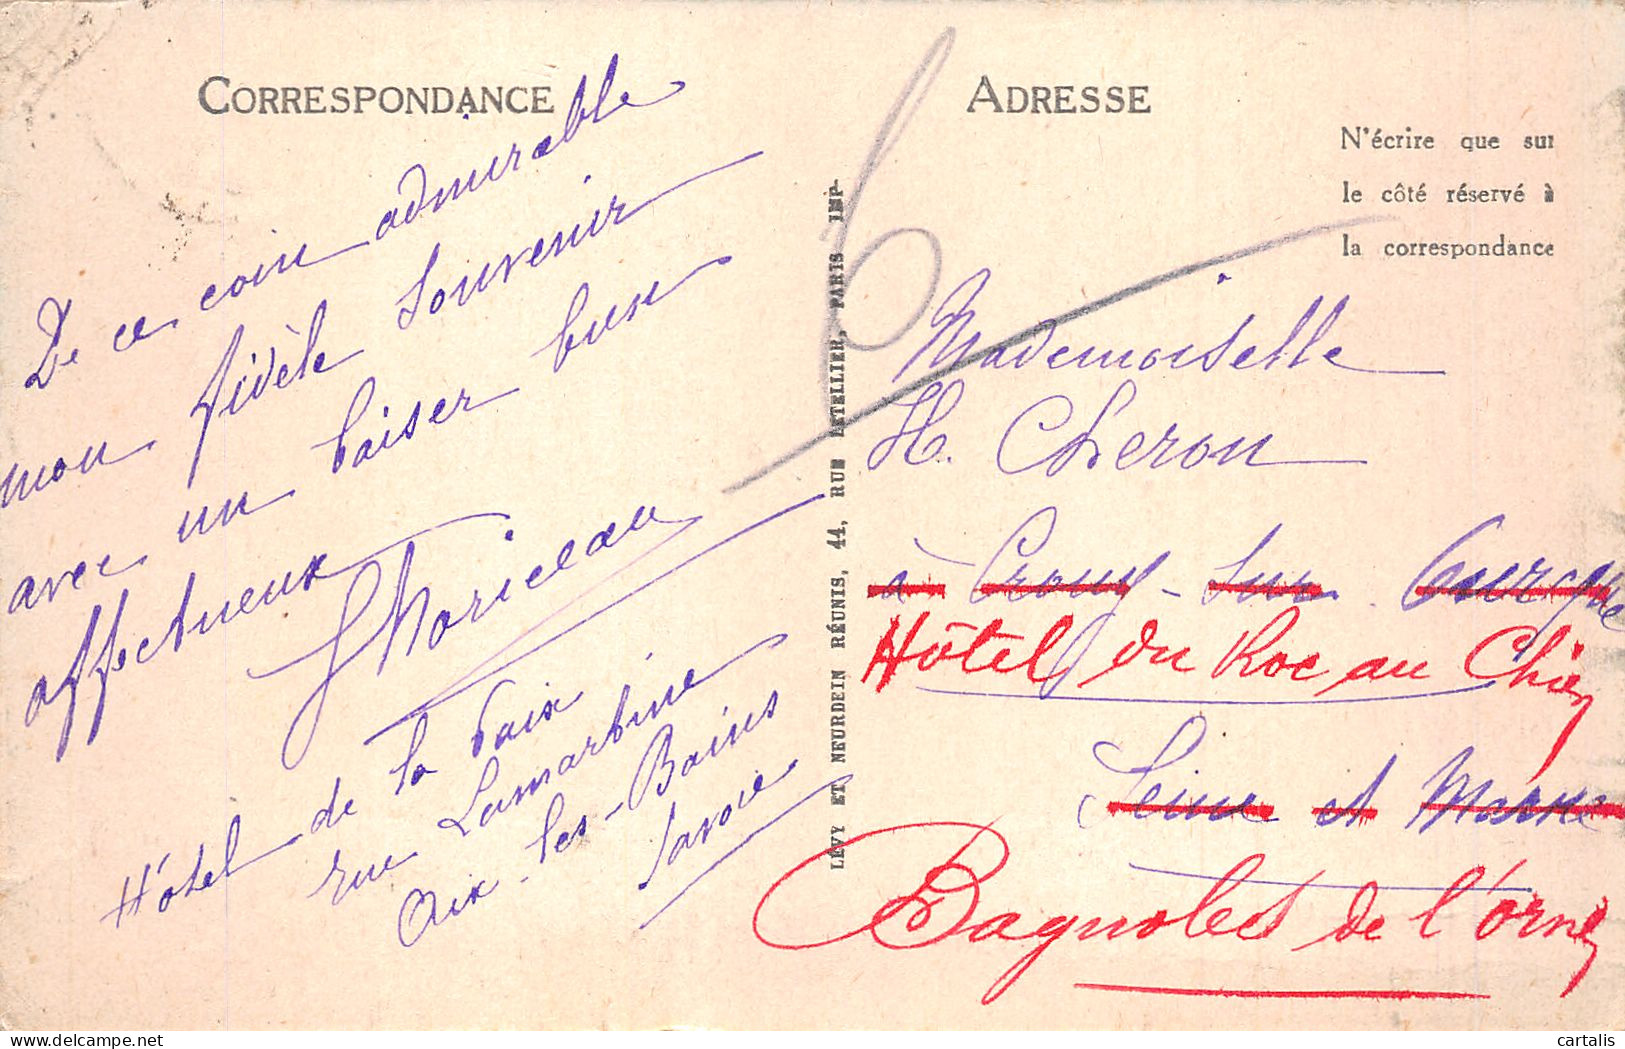 CORRESPONDANCE
De ce coin admirable
mon fidèle souvenir
avec un baiser bien
affectueux
Hôtel de la Paix
rue Lamartine
Aix-les-Bains
Savoie
LÉVY ET NEURDEIN RÉUNIS, 44, RUE LETELLIER, PARIS IMP.
ADRESSE
N'écrire que sur
le côté réservé à
la correspondance
6
Mademoiselle
H. Cheron
à Crouy-sur-Ourcque
Hôtel du Roc au Chien
Seine et Marne
Bagnoles de l'Orne
delcampe.net
cartalis